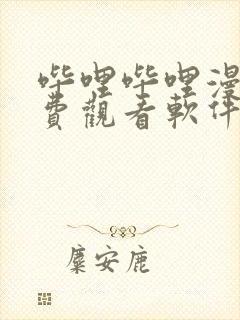 哔哩哔哩漫
費觀看軟件
麋安鹿